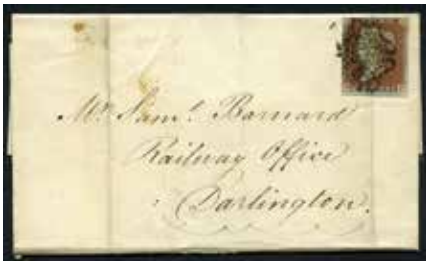 Mr. Saml. Barnard
Railway Office
Darlington.